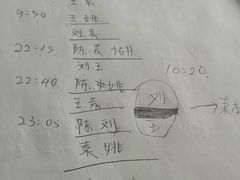 王袁
9:50 王姚
刘袁
22:15 陈袁
刘王 10:20
22:40 陈姚
王袁 刘
23:05 陈刘 王
袁姚